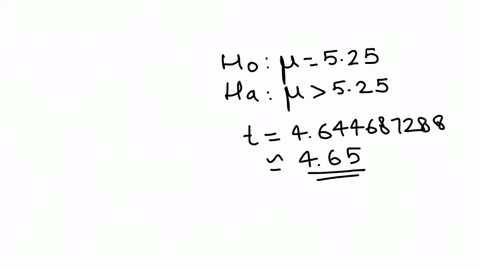 Ho: μ = 5.25
Ha: μ > 5.25
t = 4.644687288
≃ 4.65